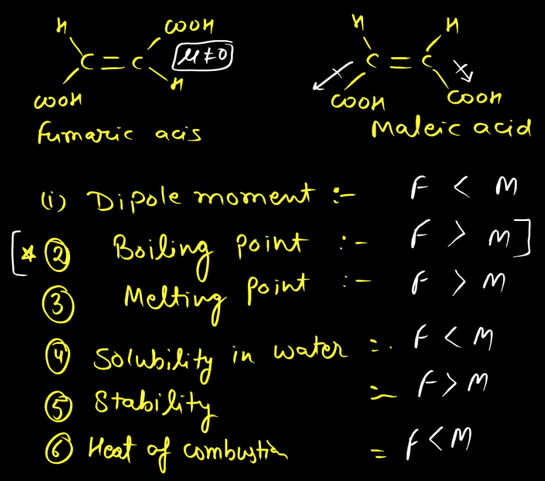 H COOH
C = C μ≠0
COOH H
Fumaric acis
H H
C = C
COOH COOH
Maleic acid
(i) Dipole moment :- F < M
[* ② Boiling Point :- F > M]
③ Melting Point :- F > M
④ Solubility in water = F < M
⑤ Stability = F > M
⑥ Heat of combustion = F < M